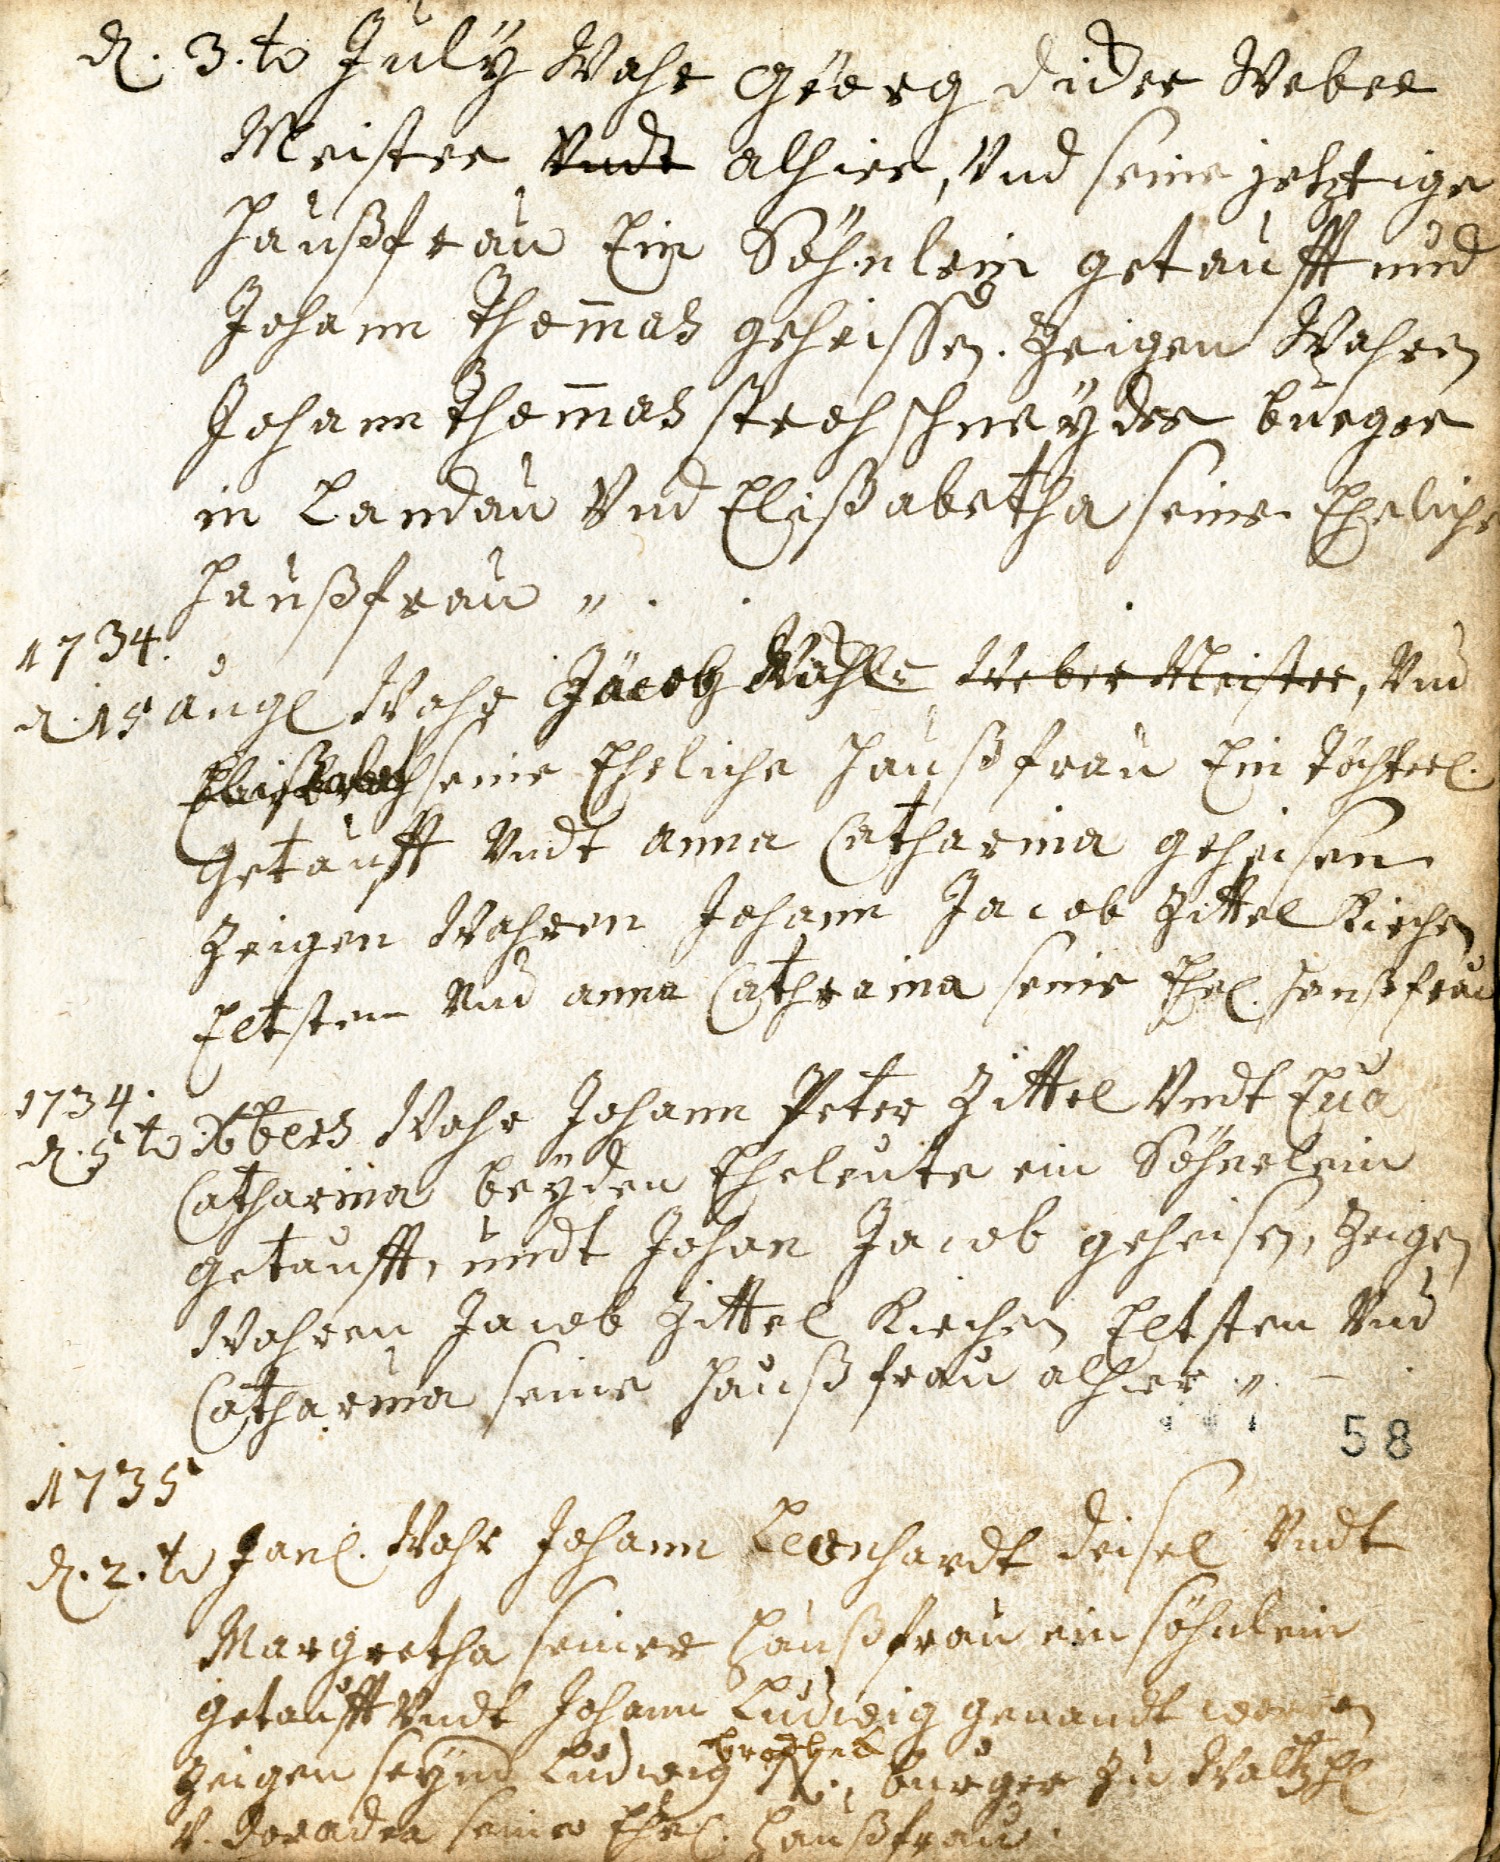 d. 3.to July Wahr Göerg dider Weber
Meister Vndt alhier, Vnd seine jetztige
Haußfrau Ein Söhnlein getaufft und
Johann Thom̄as geheissen. Zeigen Wahren
Johann Thom̄as strohschneÿder burger
in Landau Vnd Elißabetha seine Eheliche
Haußfrau „ .
1734.
d. 15 augl Wahr Jacob Weber Meister, Vnd
seine Eheliche Haußfrau Ein Töchterl.
Getaufft Vndt anna Catharina geheisen
Zeigen Wahren Johann Jacob Zittel Kirchen
Eltsten Vnd anna Cathraina seine Ehel. Haußfrau
1734.
d. 5to Xbers Wahr Johann Peter Zittel Vndt Eua
Catharina beÿden Eheleute ein Söhnelein
getaufft, undt Johan Jacob geheisen, Zeigen
Wahren Jacob Zittel Kirchen Eltsten Vnd
Catharina seine Haußfrau alhier „. –
58
1735
d. 2.to Janl. Wahr Johann Leonhardt deisel Vndt
Margretha seiner Haußfrau ein söhnlein
getaufft Vndt Johann Ludwig genandt worden
Zeigen seynd Ludwig burger zu
v. doradea seine Ehel. Haußfrau.